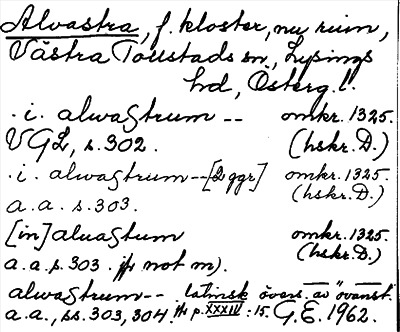 Alvastra, f. kloster, nu ruin,
Västra Tollstads sn, Lysings
hd, Österg. l.
.i. alwaʒtrum -- omkr. 1325.
VGL, s. 302. (hskr. D.)
.i. alwaʒtrum -- [2 ggr] omkr. 1325.
a. a. s. 303. (hskr. D.)
[in] aluaʒtum omkr. 1325.
a. a. s. 303. jfr not m). (hskr. D.)
alwaʒtrum -- latinsk övers. av "ovanst."
a. a., ss. 303, 304. jfr p. XXXIV : 15. G. E. 1962.